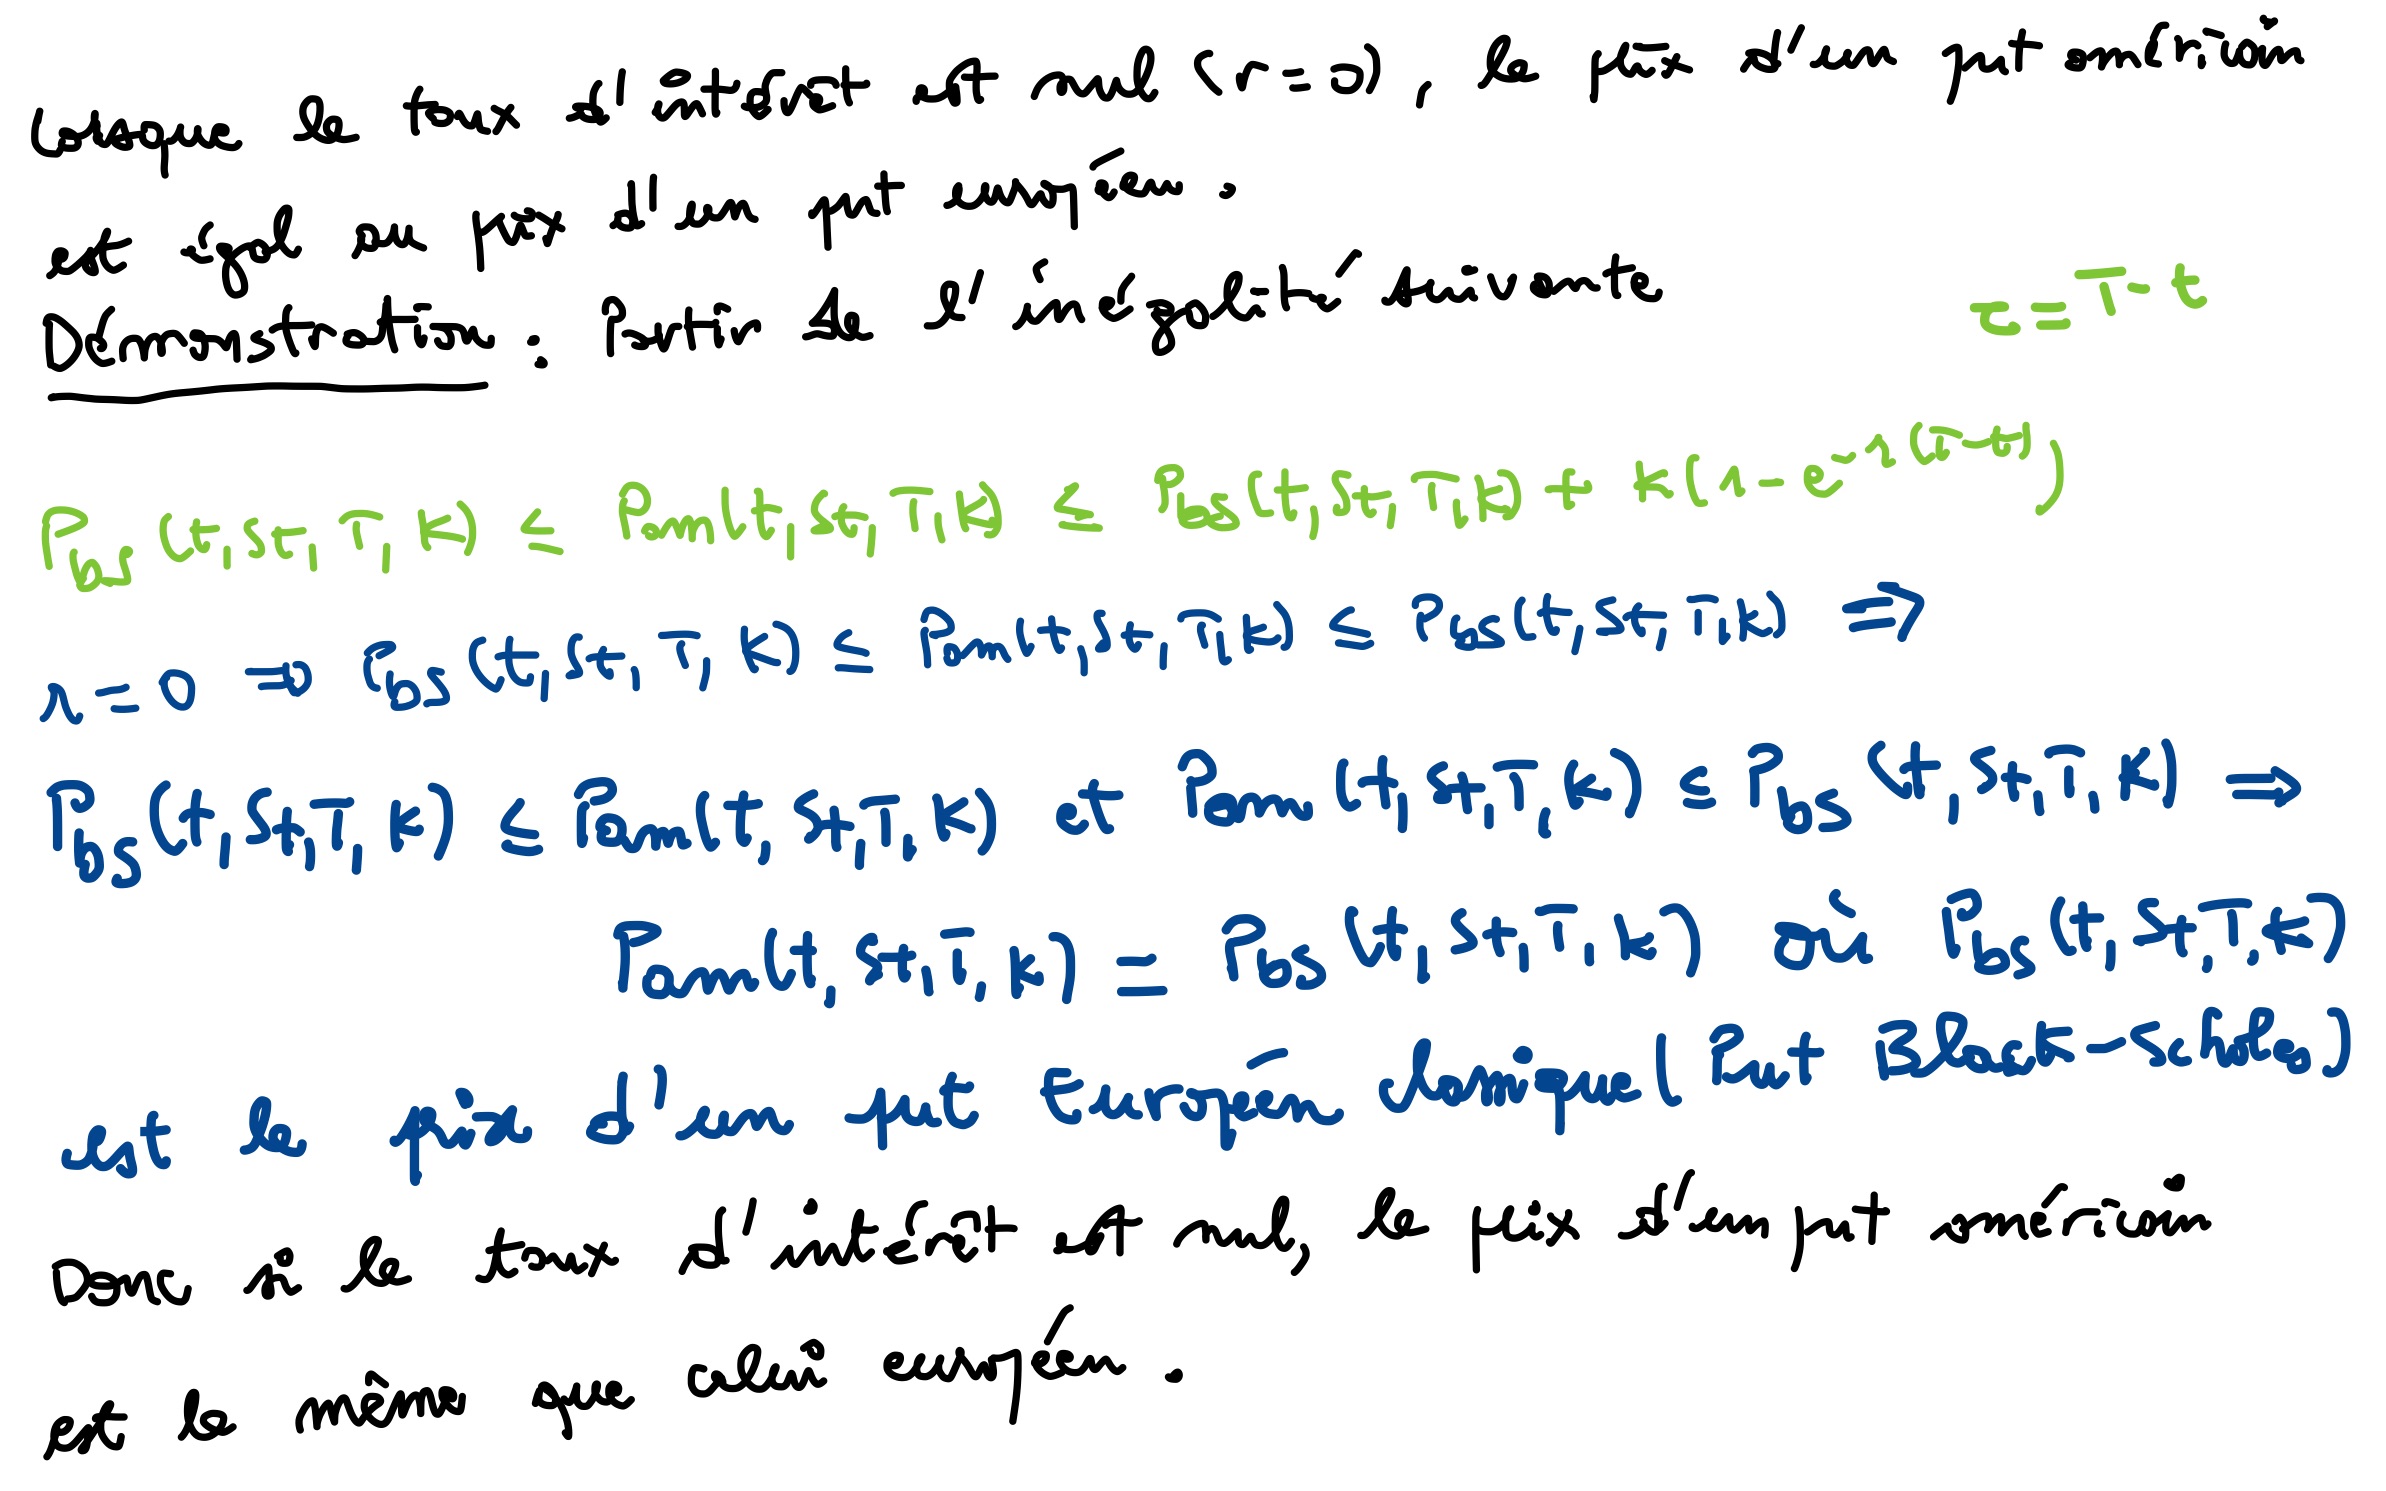 Lorsque le taux d'intérêt est nul (r = 0), le prix d'un put américain
est égal au prix d'un put européen.
τ = T - t
Démonstration : Partir de l'inégalité suivante
P_bs(t, St, T, K) ≤ P_am(t, St, T, K) ≤ P_bs(t, St, T, K) + K(1 - e^{-r(T-t)})
r = 0 ⇒ P_bs(t, St, T, K) ≤ P_am(t, St, T, K) ≤ P_bs(t, St, T, K) ⇒
P_bs(t, St, T, K) ≤ P_am(t, St, T, K) et P_am(t, St, T, K) ≤ P_bs(t, St, T, K) ⇒
P_am(t, St, T, K) = P_bs(t, St, T, K) où P_bs(t, St, T, K)
est le prix d'un put Européen classique (Put Black-Scholes)
Donc si le taux d'intérêt est nul, le prix d'un put américain
est le même que celui européen.